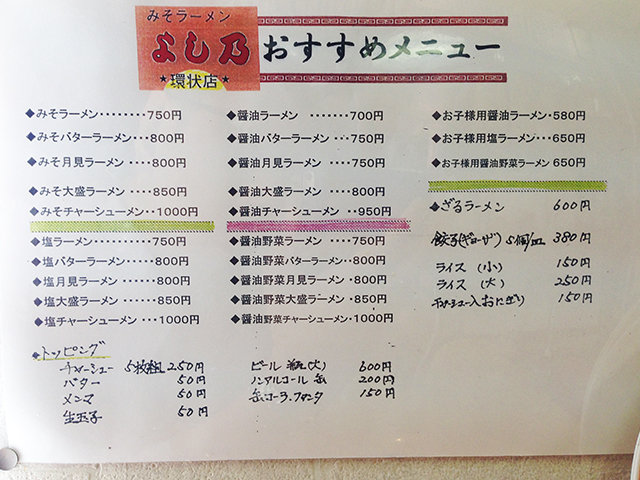 みそラーメン
よし乃
★環状店★
おすすめメニュー
◆みそラーメン・・・・・・・・750円
◆みそバターラーメン ・・・・800円
◆みそ月見ラーメン ・・・・800円
◆みそ大盛ラーメン ・・・・850円
◆みそチャーシューメン・・1000円
◆塩ラーメン・・・・・・・・・・750円
◆塩バターラーメン・・・・・・800円
◆塩月見ラーメン ・・・・・・800円
◆塩大盛ラーメン ・・・・・・850円
◆塩チャーシューメン ・・・1000円
◆醤油ラーメン ・・・・・・・700円
◆醤油バターラーメン ・・・750円
◆醤油月見ラーメン ・・・・750円
◆醤油大盛ラーメン ・・・・800円
◆醤油チャーシューメン ・・950円
◆醤油野菜ラーメン ・・・・750円
◆醤油野菜バターラーメン・800円
◆醤油野菜月見ラーメン ・800円
◆醤油野菜大盛ラーメン ・850円
◆醤油野菜チャーシューメン・1000円
◆お子様用醤油ラーメン・580円
◆お子様用塩ラーメン・・・650円
◆お子様用醤油野菜ラーメン 650円
◆ざるラーメン 600円
餃子(ギョーザ) 5個/皿 380円
ライス (小) 150円
ライス (大) 250円
チャーシュー入おにぎり 150円
◆トッピング
チャーシュー 5枚組 250円
バター 50円
メンマ 50円
生玉子 50円
ビール 瓶(大) 600円
ノンアルコール 缶 200円
缶コーラ.ファンタ 150円